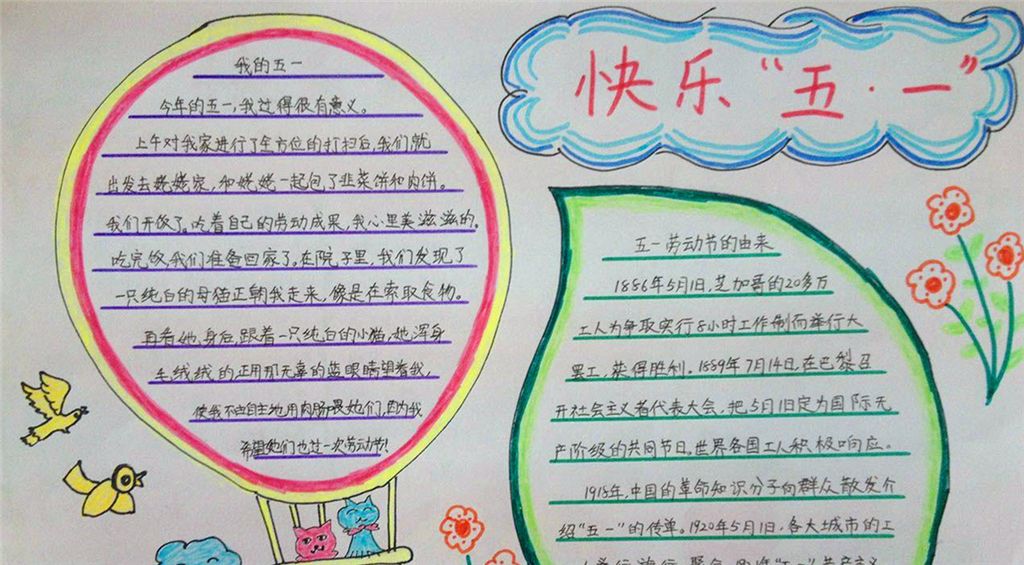 快乐“五·一”
我的五一
今年的五一,我过得很有意义。
上午对我家进行了全方位的打扫后,我们就
出发去姥姥家,和姥姥一起包了韭菜饼和肉饼。
我们开饭了。吃着自己的劳动成果,我心里美滋滋的。
吃完饭,我们准备回家了。在院子里,我们发现了
一只纯白的母猫正朝我走来,像是在索取食物。
再看她身后,跟着一只纯白的小猫,她浑身
毛绒绒的,正用那无辜的蓝眼睛望着我,
使我不由自主地用肉肠喂她们,因为我
希望她们也过一次劳动节!
五一劳动节的由来
1886年5月1日,芝加哥的20多万
工人为争取实行8小时工作制而举行大
罢工,获得胜利。1889年7月14日,在巴黎召
开社会主义者代表大会,把5月1日定为国际无
产阶级的共同节日。世界各国工人积极响应。
1918年,中国的革命知识分子向群众散发介
绍“五一”的传单。1920年5月1日,各大城市的工